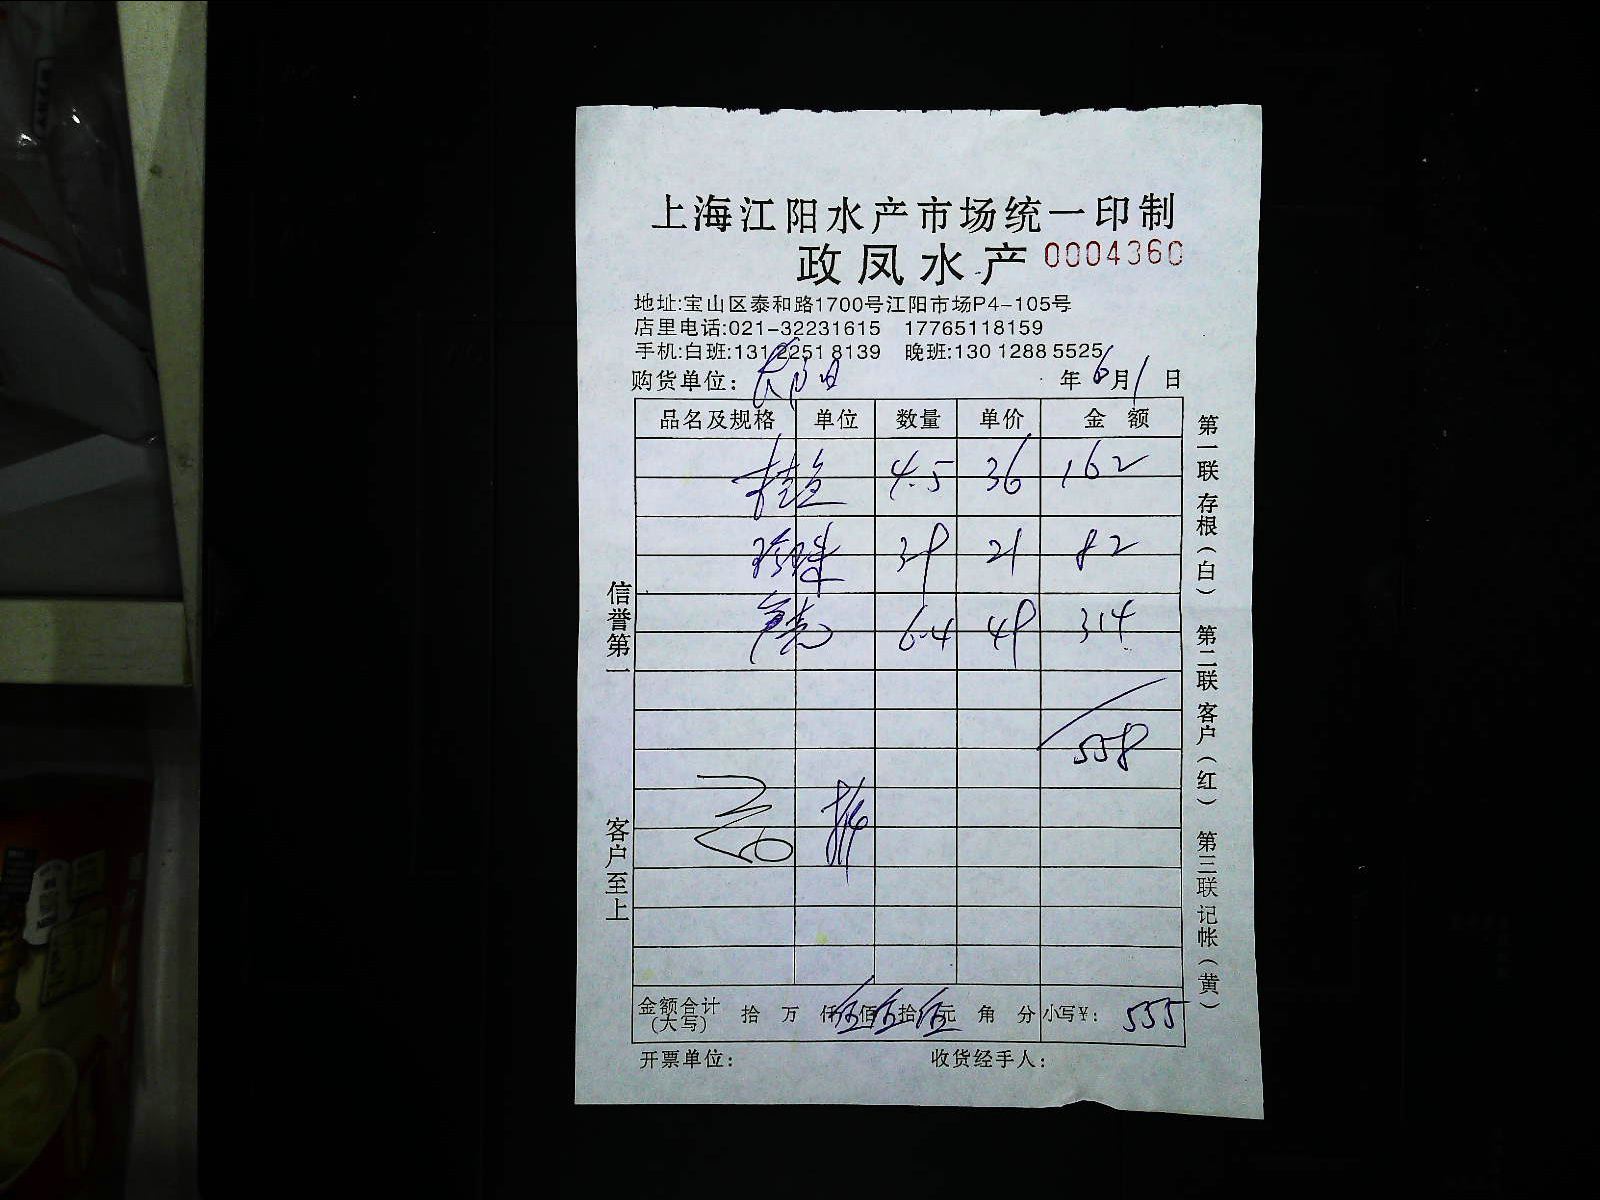 上海江阳水产市场统一印制
政凤水产 0004360
地址:宝山区泰和路1700号江阳市场P4-105号
店里电话:021-32231615 17765118159
手机:白班:131 2251 8139 晚班:130 1288 5525
购货单位: 年 6 月 1 日
品名及规格 单位 数量 单价 金 额
桂鱼 4.5 36 162
珍珠 39 21 82
6.4 49 314
558
金额合计(大写) 拾 万 仟 伍 佰 伍 拾 伍 元 角 分 小写¥: 555
开票单位: 收货经手人:
信誉第一
客户至上
第一联 存根(白) 第二联 客户(红) 第三联 记帐(黄)